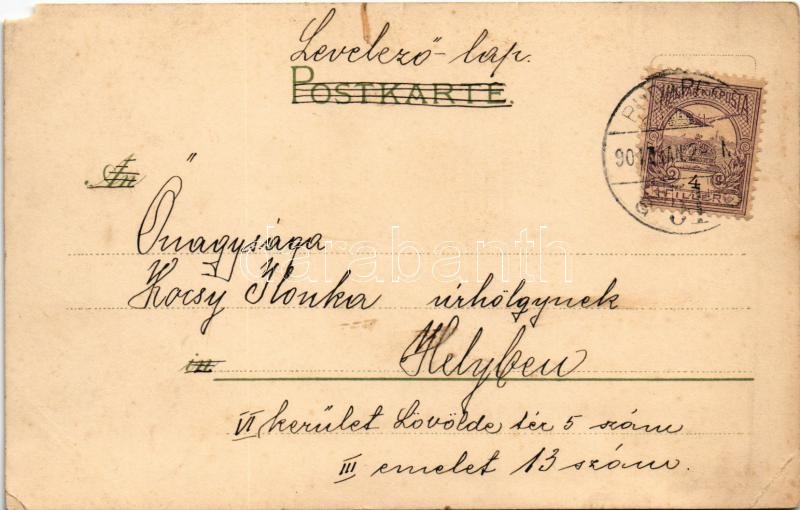 Levelező-lap.
POSTKARTE.
An
Őnagysága
Kocsy Ilonka úrhölgynek
in
Helyben
VI kerület Lövölde tér 5 szám
III emelet 13 szám.
MAGYAR KIR. POSTA
4
FILLÉR
darabanth